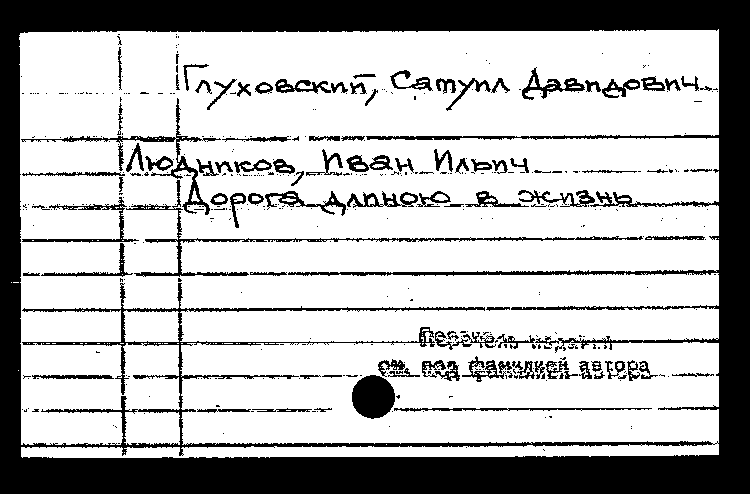 Глуховский, Самуил Давидович.
Людников, Иван Ильич
Дорога длиною в жизнь
Перечень издания
см. под фамилией автора